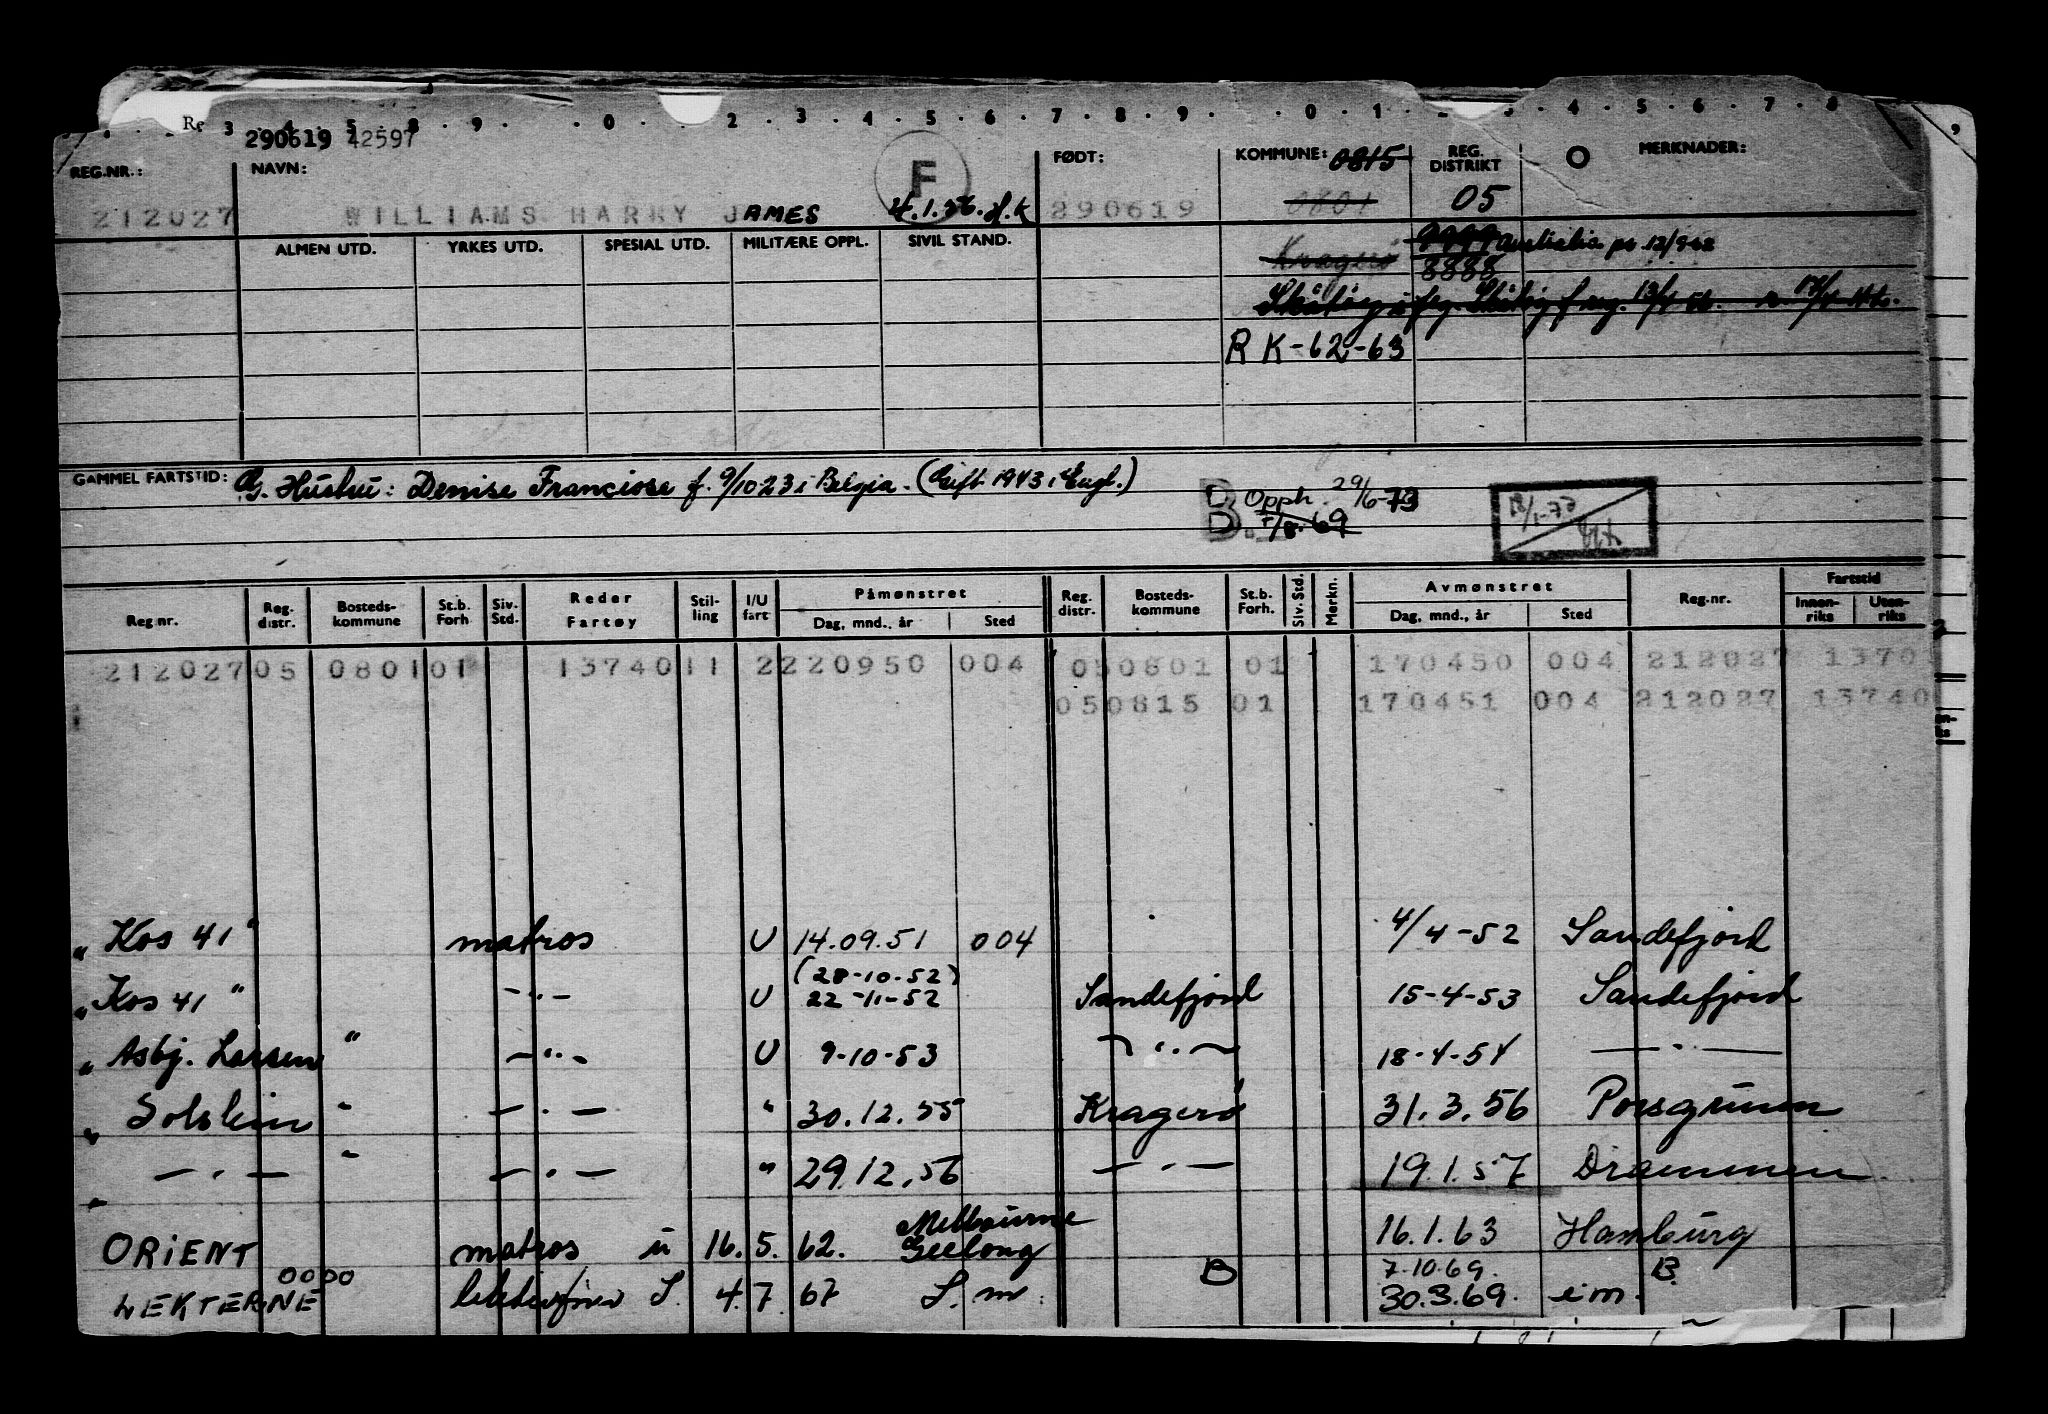 Re 3 . 4 . 5 . 8 . 9 . . 0 . . 2 . 3 . 4 . 5 . 6 . 7 . 8 . 9 . . 0 . 1 . . 4 . 5 . 6 . 7 . 8
290619 42597
REG.NR.: NAVN: F FØDT: KOMMUNE: 0815 REG. DISTRIKT O MERKNADER:
212027 WILLIAMS HARRY JAMES 4.1.56. H.K 290619 0801 05
ALMEN UTD. YRKES UTD. SPESIAL UTD. MILITÆRE OPPL. SIVIL STAND. Kragerø 9999 Australia pr 12/9-62
8888
Skåtøy
R K-62-63
GAMMEL FARTSTID: G. Hustru: Denise Franciose f. 9/10 23 i Belgia. (Gift 1943 i Engl.)
B. Opph. 29/6-73
7/8.69
18/1-73
Reg.nr. Reg. distr. Bosteds-kommune St.b. Forh. Siv. Std. Reder Fartøy Stil-ling I/U fart Påmønstret Dag, mnd., år Sted Reg. distr. Bosteds-kommune St.b. Forh. Siv. Std. Merkn. Avmønstret Dag, mnd., år Sted Reg.nr. Fartstid Innen-riks Uten-riks
212027 05 0801 01 13740 11 2 220950 004 050801 01 170450 004 212027 1370
050815 01 170451 004 212027 13740
" Kos 41 " matros U 14.09.51 004 4/4-52 Sandefjord
(28-10-52)
" Kos 41 " -"- U 22-11-52 Sandefjord 15-4-53 Sandefjord
" Asbj. Larsen " -"- U 9-10-53 -"- 18-4-54 -"-
" Solstein " -"- " 30.12.55 Kragerø 31.3.56 Porsgrunn
" -"- " -"- " 29.12.56 -"- 19.1.57 Drammen
Melbourne
ORIENT matros u 16.5.62. Geelong 16.1.63 Hamburg
0000 B 7.10.69. B.
LEKTERNE S. 4.7.67 S.m. 30.3.69. i m.